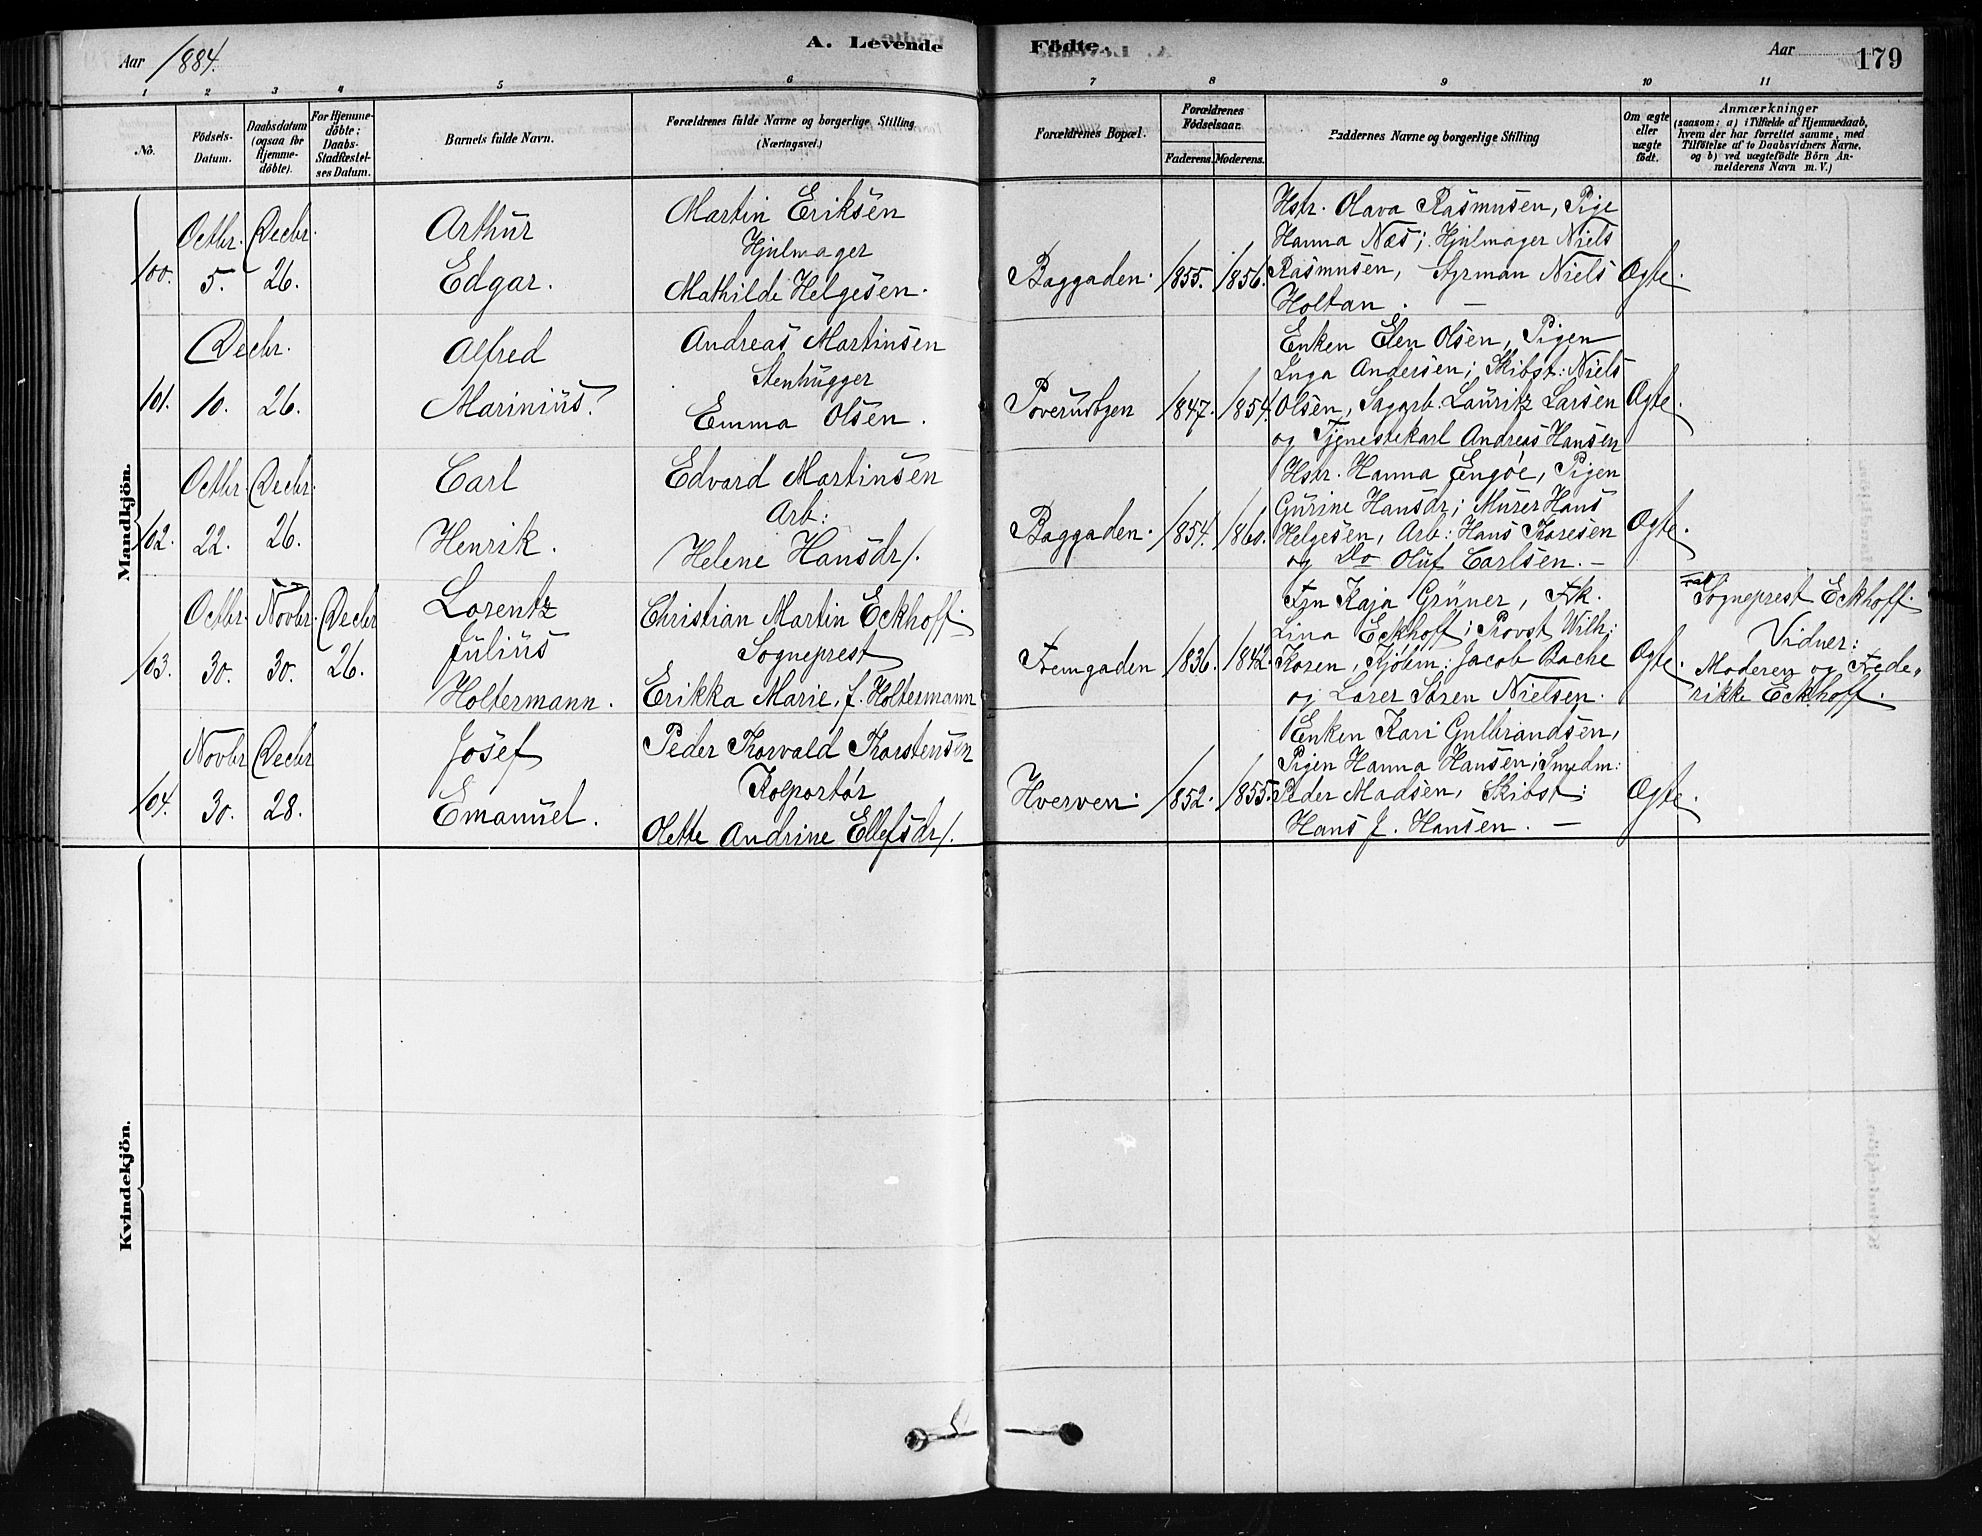 Aar 1884.
A. Levende
Födte.
Aar
179
1 2 3 4 5 6 7 8 9 10 11
No.
Födsels-
Datum.
Daabsdatum
(ogsaa for
Hjemme-
döbte).
For Hjemme-
döbte;
Daabs-
Stadfæstel-
ses Datum.
Barnets fulde Navn.
Forældrenes fulde Navne og borgerlige Stilling
(Næringsvei.)
Forældrenes Bopæl.
Forældrenes
Födselsaar.
Faderens. Moderens.
Faddernes Navne og borgerlige Stilling
Om ægte
eller
uægte
födt.
Anmærkninger
(saasom: a) i Tilfælde af Hjemmedaab,
hvem der har forrettet samme, med
Tilföielse af to Daabsvidners Navne.
og b) ved uægtefödte Börn An-
melderens Navn m. V.)
Mandkjön.
100.
Octbr.
5.
Decbr.
26.
Arthur
Edgar.
Martin Eriksen
Hjulmager
Mathilde Helgesen.
Baggaden.
1855.
1856.
Hstr. Olava Rasmusen, Pige
Hanna Næs; Hjulmager Niels
Rasmusen, Styrman Niels
Holtan. —
Ægte.
101.
Decbr.
10.
26.
Alfred
Marinius.
Andreas Martinsen
Stenhugger
Emma Olsen.
1847.
1854.
Enken Elen Olsen, Pigen
Inga Andersen; Skibst: Niels
Olsen, Sagarb. Lauritz Larsen
og Tjenestekarl Andreas Hansen
Ægte.
102.
Octbr.
22.
Decbr.
26.
Carl
Henrik.
Edvard Martinsen
Arb:
Helene Hansdr/.
Baggaden.
1854.
1860.
Hstr. Hanna Engöe, Pigen
Gurine Hansdr; Murer Hans
Helgesen, Arb: Hans Thoresen
og Do Oluf Carlsen. —
Ægte.
103.
Octbr.
30.
Novbr.
30.
Decbr
26.
Lorentz
Julius
Holtermann.
Christian Martin Eckhoff.
Sogneprest
Erikka Marie, f. Holtermann
Fremgaden
1836.
1842.
Frk.
Lina Eckhoff; Provst Wilh:
Koren, Kjöbm: Jacob Bache
og Lærer Sören Nielsen.
Ægte.
Sogneprest Eckhoff.
Vidner:
Moderen og Frede-
rikke Eckhoff.
104.
Novbr
30.
Decbr
28.
Josef
Emanuel.
Peder Thorvald Thorstensen
Kolportör
Olette Andrine Ellefsdr/.
Hverven.
1852.
1855.
Enken Kari Gulbrandsen,
Pigen Hanna Hansen; Smedm:
Peder Madsen, Skibst:
Hans J. Hansen. —
Ægte.
Kvindekjön.